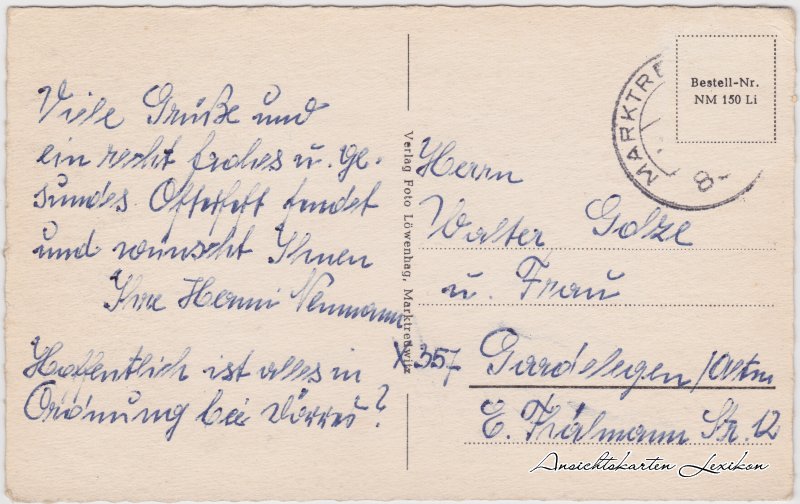 Viele Grüße und
ein recht frohes u. ge-
sundes Osterfest sendet
und wünscht Ihnen
Ihre Hermi Neumann
Hoffentlich ist alles in
Ordnung bei
Verlag Foto Löwenhag, Marktredwitz
MARKTRE
8-
Bestell-Nr.
NM 150 Li
Herrn
Walter Golze
u. Frau
X 357 Gardelegen/Altm
E. Thälmann Str. 12
Ansichtskarten Lexikon